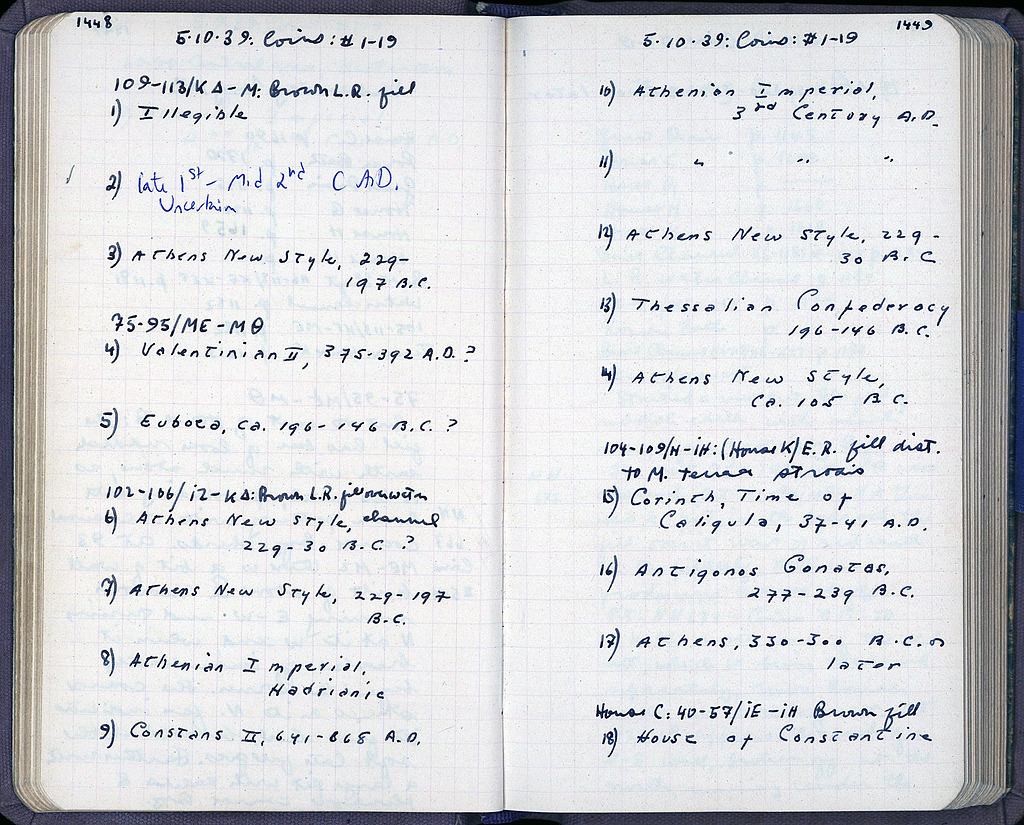 1448
5·10·39: Coins: # 1-19
109-113/ΚΔ-Μ: Brown L.R. fill
1) Illegible
2) late 1st - Mid 2nd C A.D.
Uncertain
3) Athens New Style, 229-
197 B.C.
75-95/ΜΕ-ΜΘ
4) Valentinian II, 375-392 A.D.?
5) Euboea, ca. 196-146 B.C.?
102-106/ΙΖ-ΚΔ: Brown L.R. fill over water
6) Athens New Style, channel
229-30 B.C.?
7) Athens New Style, 229-197
B.C.
8) Athenian Imperial,
Hadrianic
9) Constans II, 641-668 A.D.
1449
5·10·39: Coins: # 1-19
10) Athenian Imperial,
3rd Century A.D.
11) " " "
12) Athens New Style, 229-
30 B.C
13) Thessalian Confederacy
196-146 B.C.
14) Athens New Style,
Ca. 105 B.C.
104-109/Η-ΙΗ: (House K) E.R. fill dist.
to M.
15) Corinth, Time of
Caligula, 37-41 A.D.
16) Antigonos Gonatas,
277-239 B.C.
17) Athens, 330-300 B.C. or
later
House C: 40-57/ΙΕ-ΙΗ Brown fill
18) House of Constantine